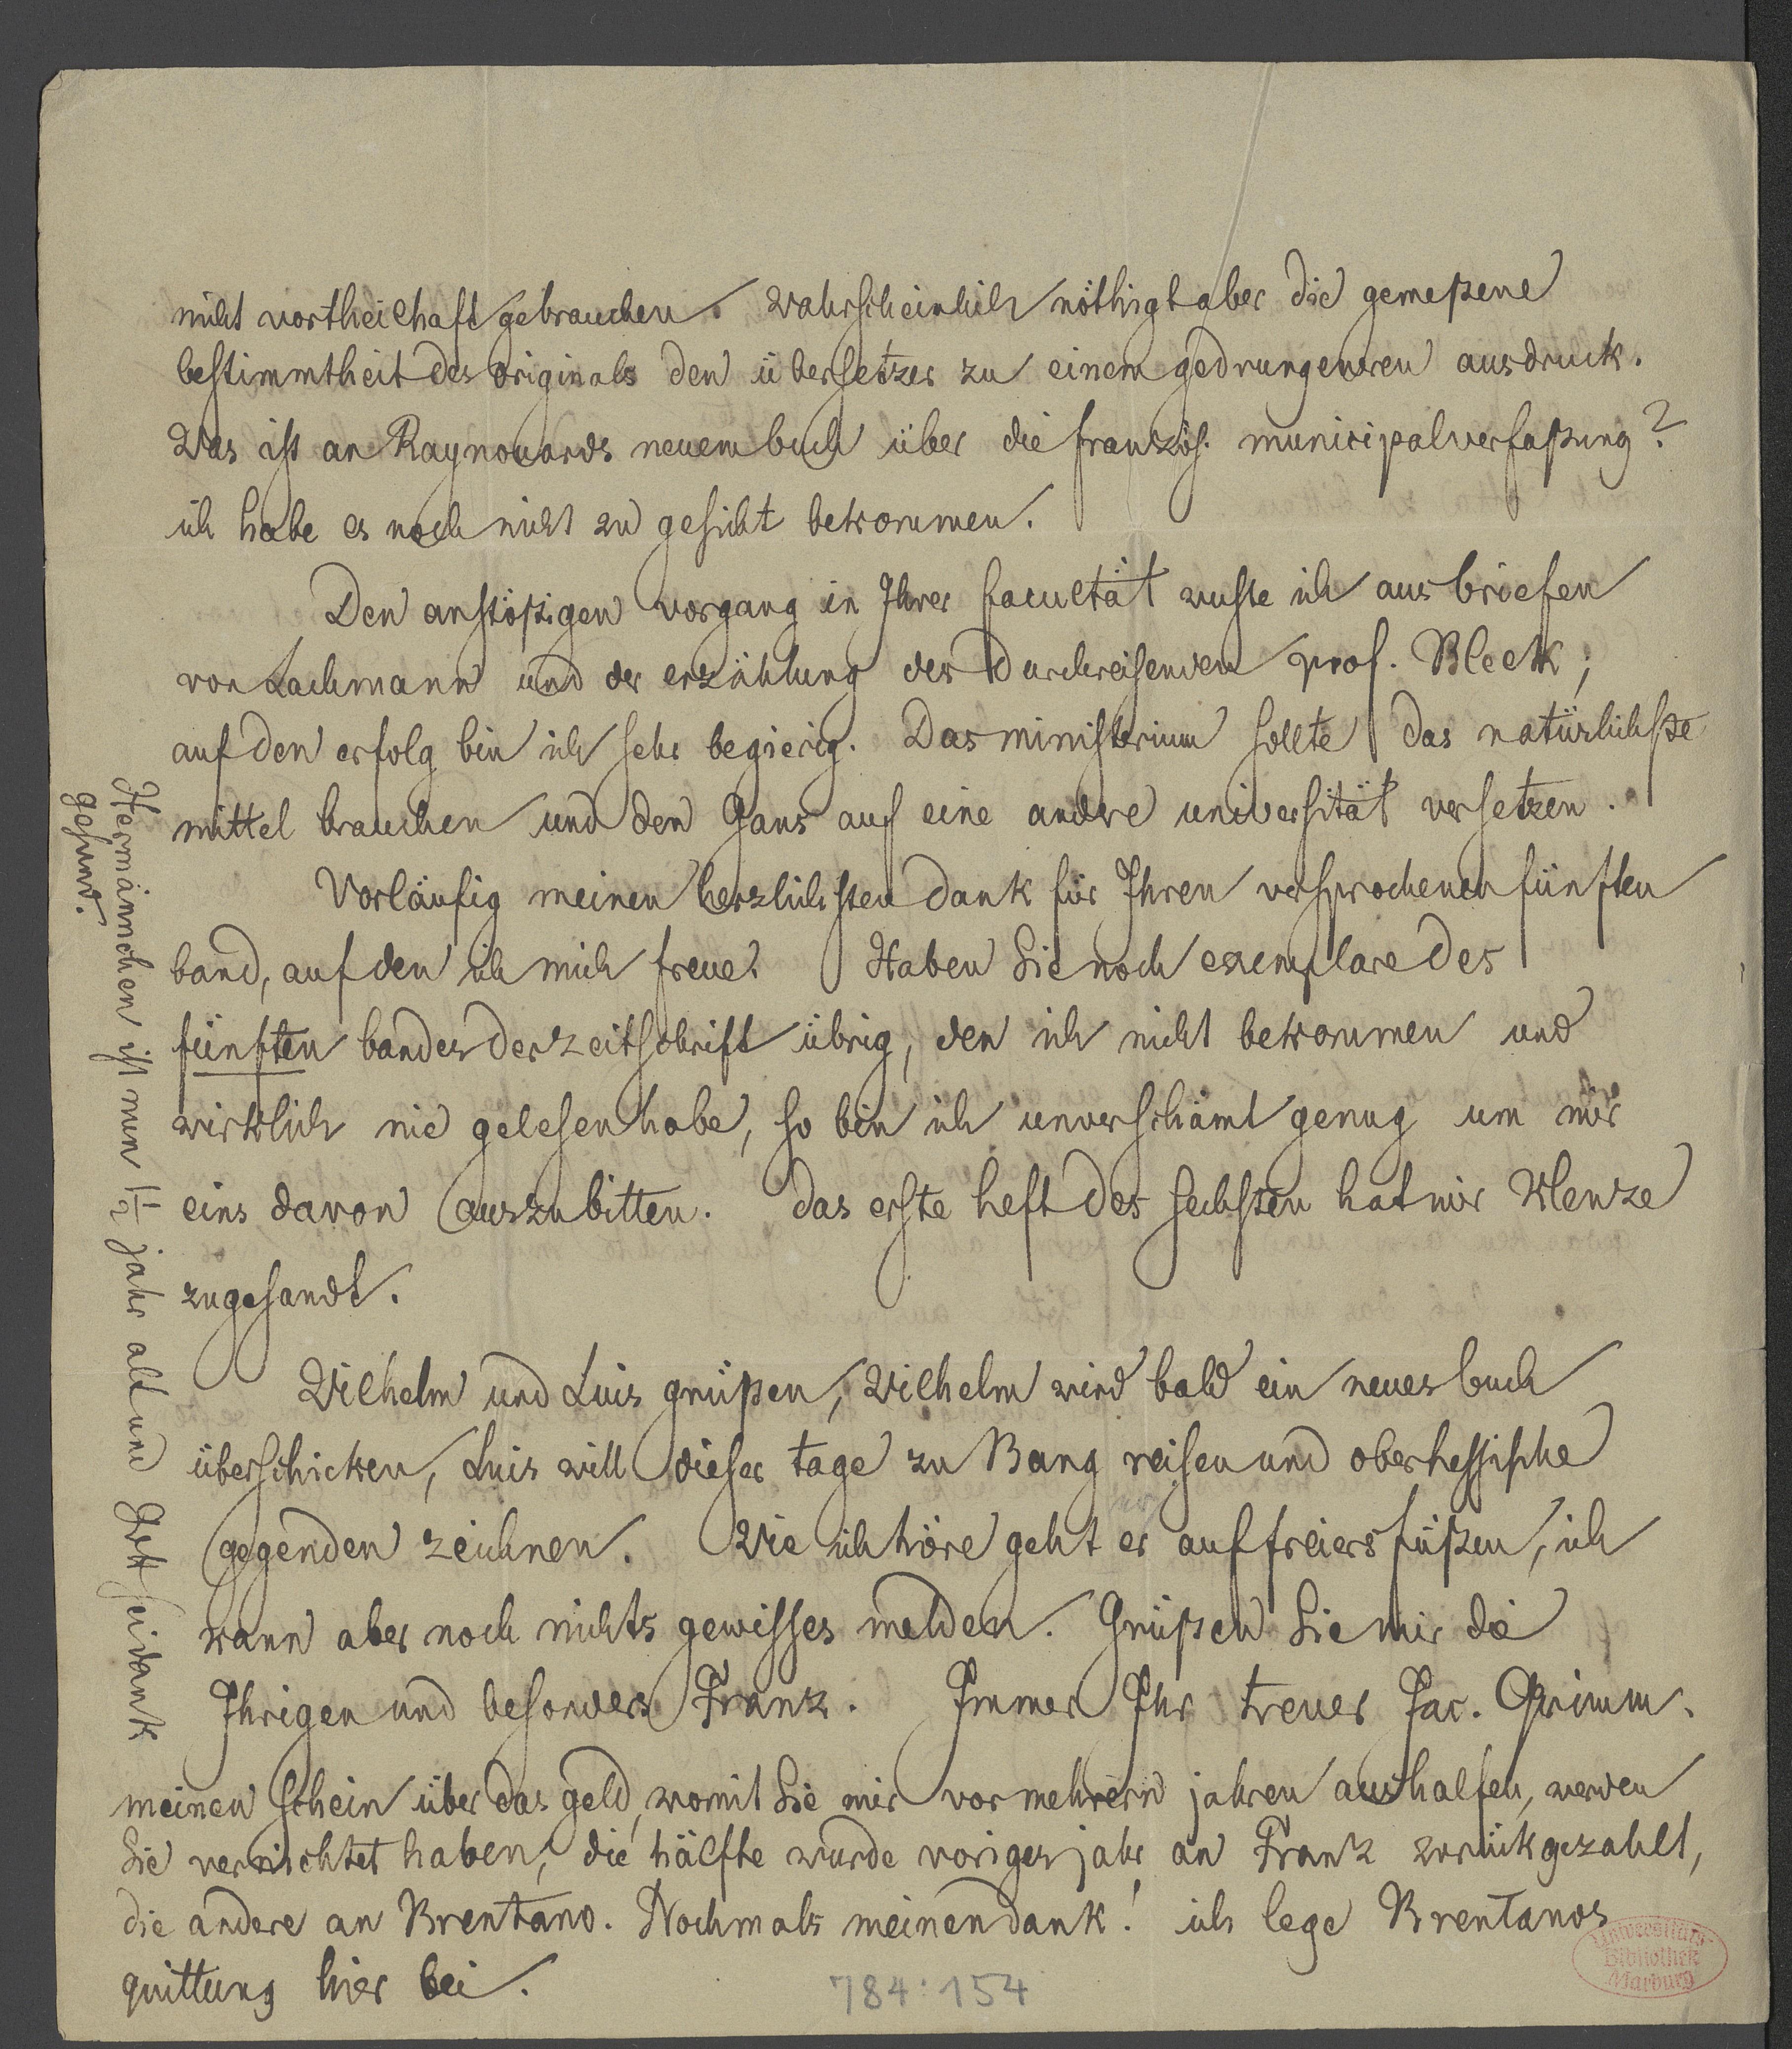 nicht vortheilhaft gebrauchen. Wahrscheinlich nöthigt aber die gemeßene
bestimmtheit des originals den übersetzer zu einem gedrungneren ausdruck.
Was ist an Raynouards neuem buch über die französ. municipalverfaßung?
ich habe es noch nicht zu gesicht bekommen.
Den anstößigen vorgang in Ihrer facultät wuste ich aus briefen
von Lachmann und der erzählung des durchreisenden prof. Bleek;
auf den erfolg bin ich sehr begierig. Das ministerium sollte das natürlichste
mittel brauchen und den Gans auf eine andre universität versetzen.
Vorläufig meinen herzlichsten dank für Ihren versprochenen fünften
band, auf den ich mich freue. Haben Sie noch exemplare des
fünften bandes der zeitschrift übrig, den ich nicht bekommen und
wirklich nie gelesen habe, so bin ich unverschämt genug um mir
eins davon auszubitten. das erste heft des sechsten hat mir Klenze
zugesandt.
Wilhelm und Luis grüßen, Wilhelm wird bald ein neues buch
überschicken, Luis will dieser tage zu Bang reisen und oberhessische
gegenden zeichnen. Wie ich höre geht er auf freiersfüßen, ich
kann aber noch nichts gewisses melden. Grüßen Sie mir die
Ihrigen und besonders Franz. Immer Ihr treuer Jac. Grimm.
meinen schein über das geld, womit Sie mir vor mehrern jahren aushalfen, werden
Sie vernichtet haben, die hälfte wurde voriges jahr an Franz zurückgezahlt,
die andere an Brentano. Nochmals meinen dank! ich lege Brentanos
quittung hier bei.
Hermännchen ist nun 1½ jahr alt und Gott sei dank
gesund.
784:154
Universitäts-
Bibliothek
Marburg